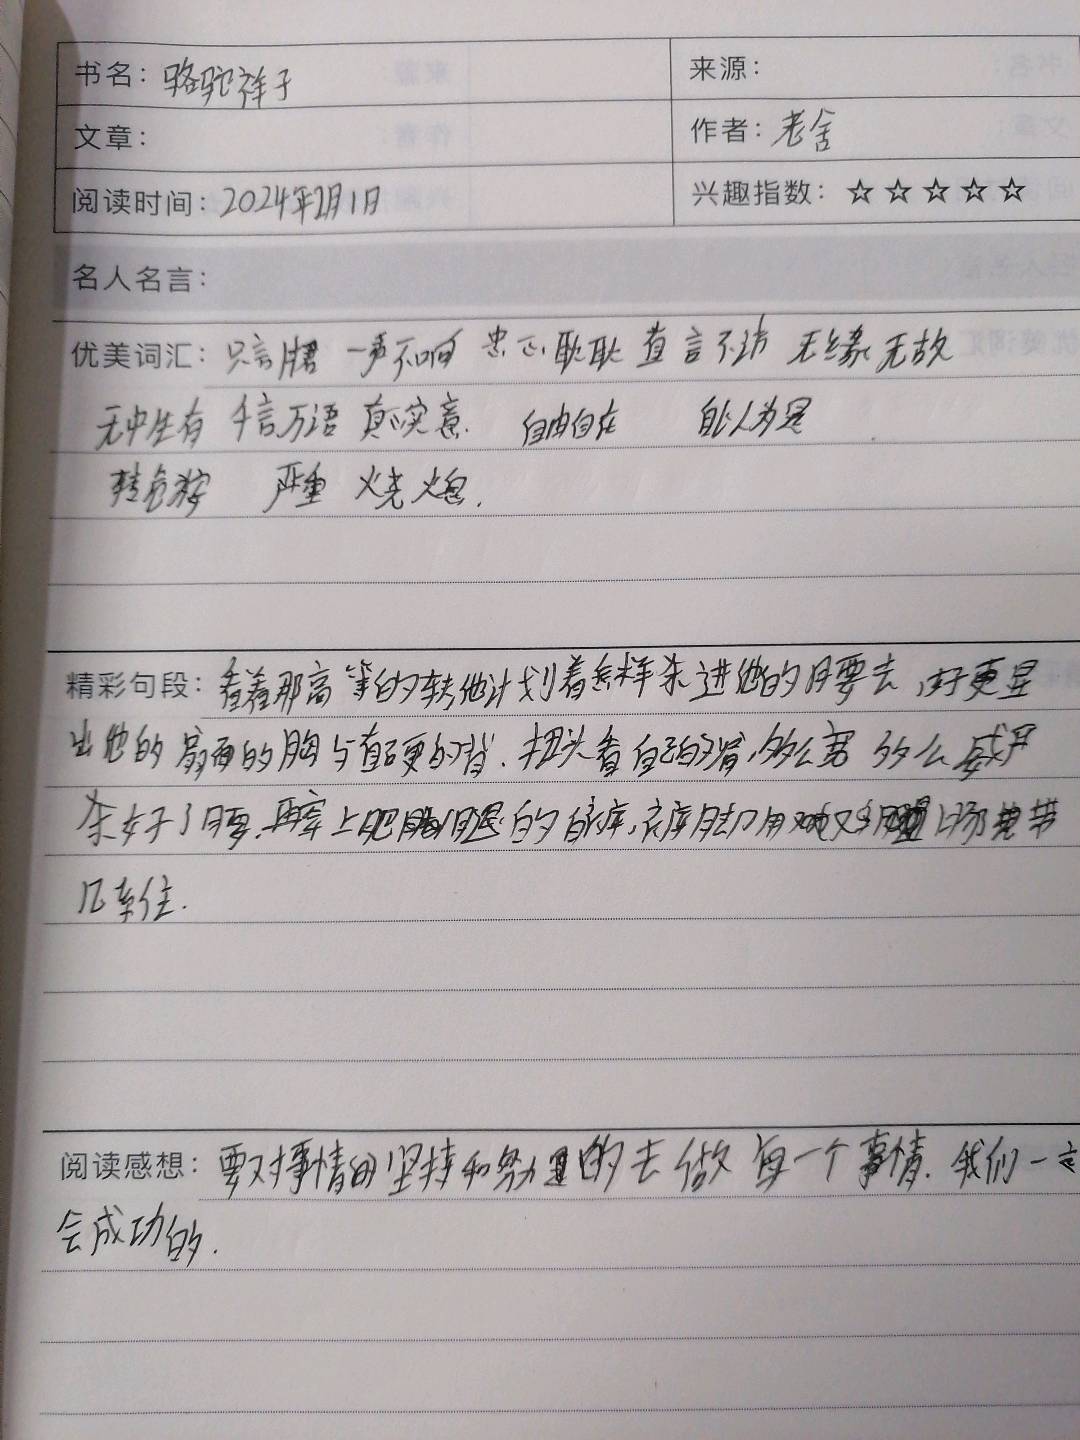 书名：骆驼祥子 来源：
文章： 作者：老舍
阅读时间：2024年2月1日 兴趣指数：☆☆☆☆☆
名人名言：
优美词汇：只言 一声不响 忠心耿耿 直言不讳 无缘无故
无中生有 千言万语 真心实意 自由自在
转危为安 严重 火烧火燎.
精彩句段：看着那高等的车夫他计划着怎样杀进他的腰去，好更显
出他的扇面的胸与直硬的背.扭头看自己的肩，多么宽 多么威严
杀好了腰，再穿上肥腿的白裤，裤脚用 带
儿系住.
阅读感想：要对事情的坚持和努力的去做每一个事情.我们一定
会成功的.